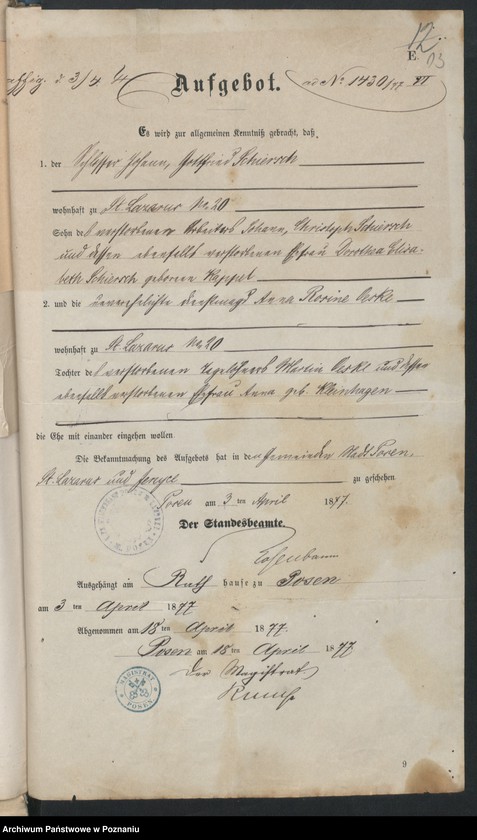 12
E.
13
3/4
Aufgebot.
ad No 1430/77 VI
Es wird zur allgemeinen Kenntniß gebracht, daß
1. der Schlosser Johann, Gottfried Schiersch
wohnhaft zu St. Lazarus No 20
Sohn des verstorbenen Arbeiters Johann, Christoph Schiersch
und dessen ebenfalls verstorbenen Ehefrau Dorothea Elisa-
beth Schiersch geborenen Keppel
2. und die unverehelichte Dienstmagd Anna Rosine
wohnhaft zu St. Lazarus No 20
Tochter des verstorbenen Martin und dessen
ebenfalls verstorbenen Ehefrau Anna geb. Kleinhagen
die Ehe mit einander eingehen wollen.
Die Bekanntmachung des Aufgebots hat in den Gemeinden Stadt Posen,
St. Lazarus und Jersyce zu geschehen
Posen am 3 ten April 1877.
Der Standesbeamte.
Ausgehängt am Rath hause zu Posen
am 3 ten April 1877
Abgenommen am 18 ten April 1877.
Posen am 18 ten April 1877
Der Magistrat
MAGISTRAT
POSEN
9
Archiwum Państwowe w Poznaniu